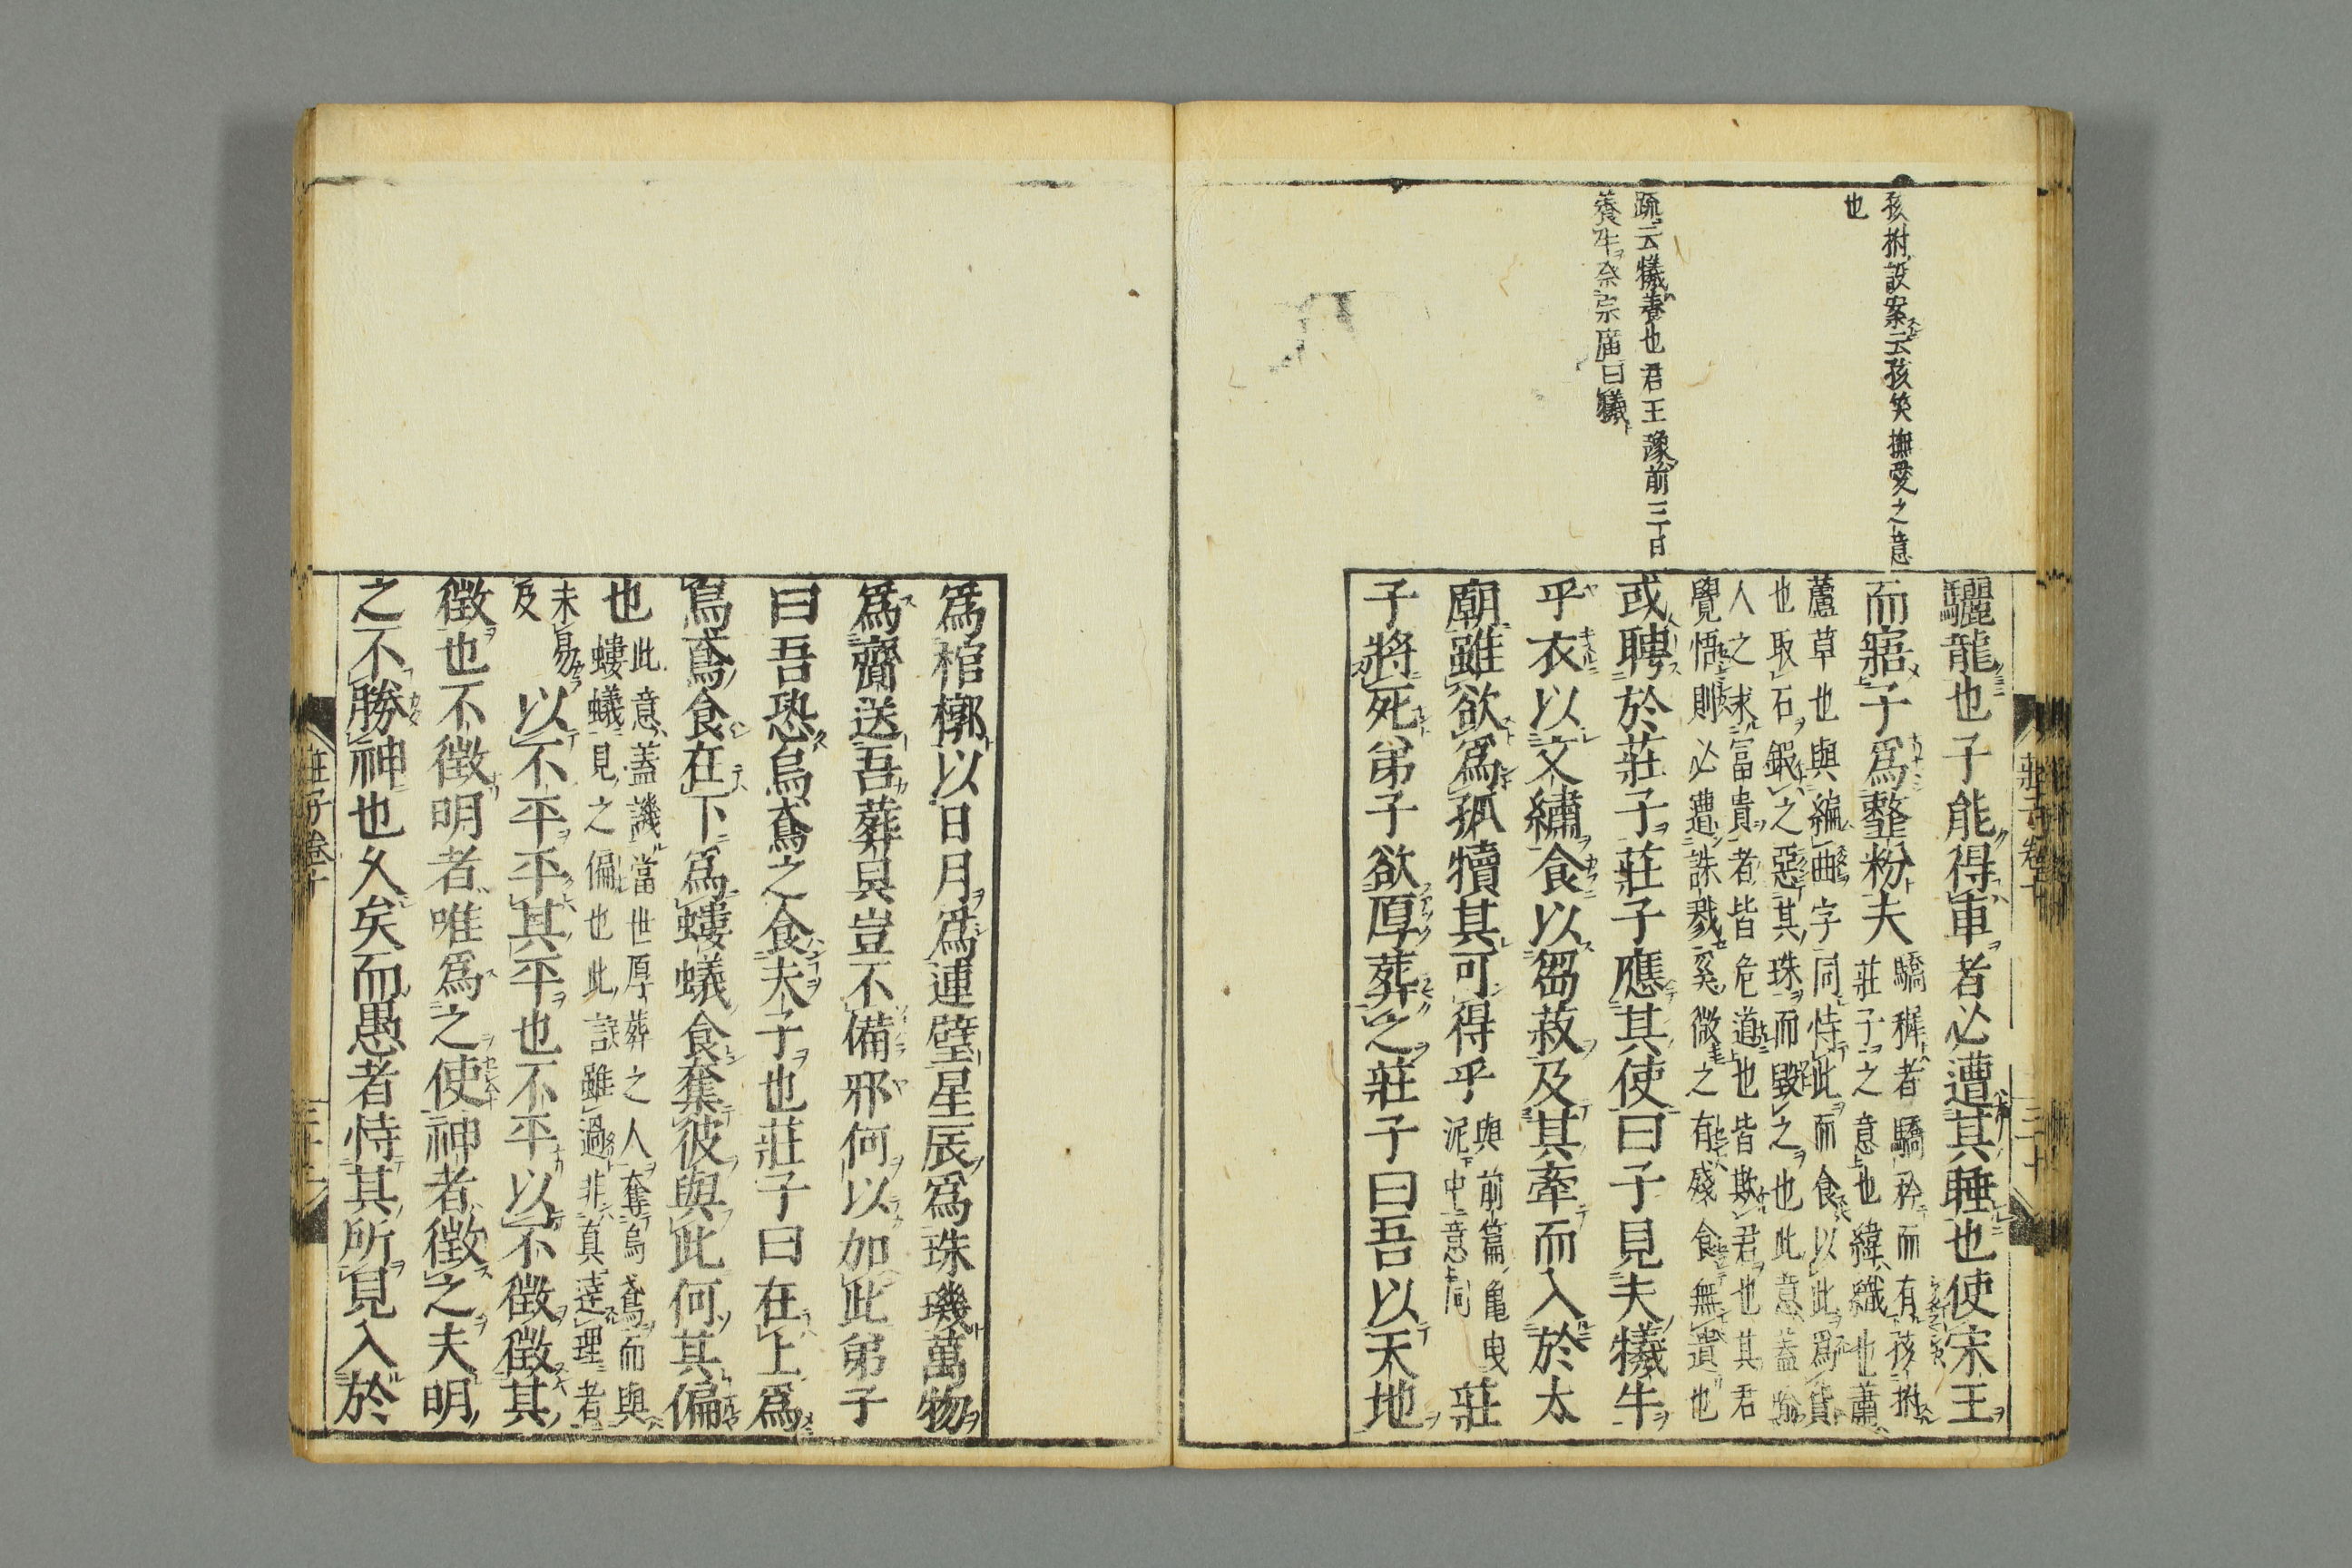 孩拊設案云孩笑撫愛之意
也
疏云犧養也君王豫前三日
養牛祭宗廟曰犧
驪龍也子能得車者必遭其睡也使宋王
而寤子為韲粉夫
驕穉者驕矜而有孩拊
莊子之意也緯織也蕭
蘆草也與編曲字同恃此而食以此為貨
也取石鍜之惡其珠而毀之也此意蓋
人之求富貴者皆危道也皆欺君也其君
覺悟則必遭誅戮奚微之有殘食無遺也
或聘於莊子莊子應其使曰子見夫犧牛
乎衣以文繡食以芻菽及其牽而入於太
廟雖欲為孤犢其可得乎
與前篇亀曳
泥中意同
莊
子將死弟子欲厚葬之莊子曰吾以天地
莊子卷十
三十
為棺槨以日月為連璧星辰為珠璣萬物
為齎送吾葬具豈不備邪何以加此弟子
曰吾恐烏鳶之食夫子也莊子曰在上為
烏鳶食在下為螻蟻食奪彼與此何其偏
也
此意蓋譏當世厚葬之人奪烏鳶而與
螻蟻見之偏也此説雖過非真達理者
未易
及
以不平平其平也不平以不徵徵其
徵也不徵明者唯為之使神者徵之夫明
之不勝神也久矣而愚者恃其所見入於
莊子卷十